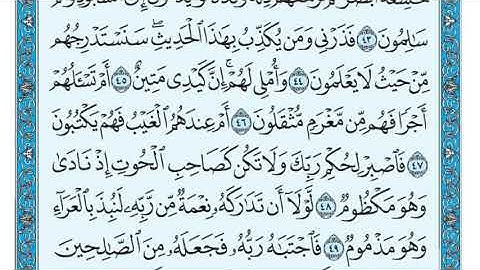 سَٰلِمُونَ ٤٣ فَذَرْنِي وَمَن يُكَذِّبُ بِهَٰذَا ٱلْحَدِيثِۖ سَنَسْتَدْرِجُهُم
مِّنْ حَيْثُ لَا يَعْلَمُونَ ٤٤ وَأُمْلِي لَهُمْۚ إِنَّ كَيْدِي مَتِينٌ ٤٥ أَمْ تَسْـَٔلُهُمْ
أَجْرًا فَهُم مِّن مَّغْرَمٍ مُّثْقَلُونَ ٤٦ أَمْ عِندَهُمُ ٱلْغَيْبُ فَهُمْ يَكْتُبُونَ
٤٧ فَٱصْبِرْ لِحُكْمِ رَبِّكَ وَلَا تَكُن كَصَاحِبِ ٱلْحُوتِ إِذْ نَادَىٰ
وَهُوَ مَكْظُومٌ ٤٨ لَّوْلَآ أَن تَدَٰرَكَهُۥ نِعْمَةٌ مِّن رَّبِّهِۦ لَنُبِذَ بِٱلْعَرَآءِ
وَهُوَ مَذْمُومٌ ٤٩ فَٱجْتَبَٰهُ رَبُّهُۥ فَجَعَلَهُۥ مِنَ ٱلصَّٰلِحِينَ